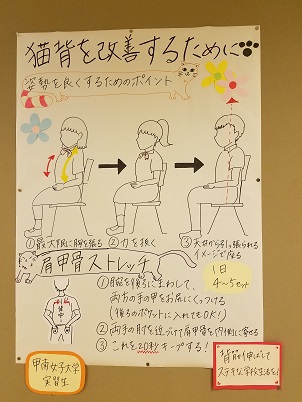 猫背を改善するために
姿勢を良くするためのポイント
①最大限に胸を張る
②力を抜く
③天井から引っ張られる
イメージで座る
肩甲骨ストレッチ
1日
4〜5セット
①腕を後ろにまわして、
両方の手の甲をお尻にくっつける
(後ろのポケットに入れてもOK!)
②両手の肘を近づけて肩甲骨を内側に寄せる
③これを20秒キープする!
甲南女子大学
実習生
背筋を伸ばして
ステキな学校生活を!